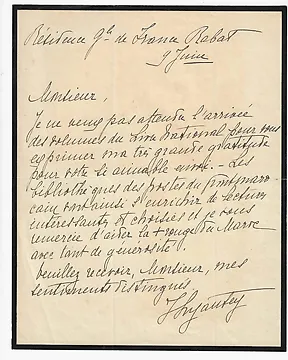 Résidence Gle de France Rabat
9 Juin
Monsieur,
Je ne veux pas attendre l'arrivée
des volumes du Livre National pour vous
exprimer ma très grande gratitude
pour votre aimable envoi - Les
bibliothèques des postes du front maro-
cain vont ainsi s'enrichir de lectures
intéressantes et choisies et je vous
remercie d'aider la + rouge du Maroc
avec tant de générosité.
Veuillez recevoir, Monsieur, mes
sentiments distingués
Lyautey